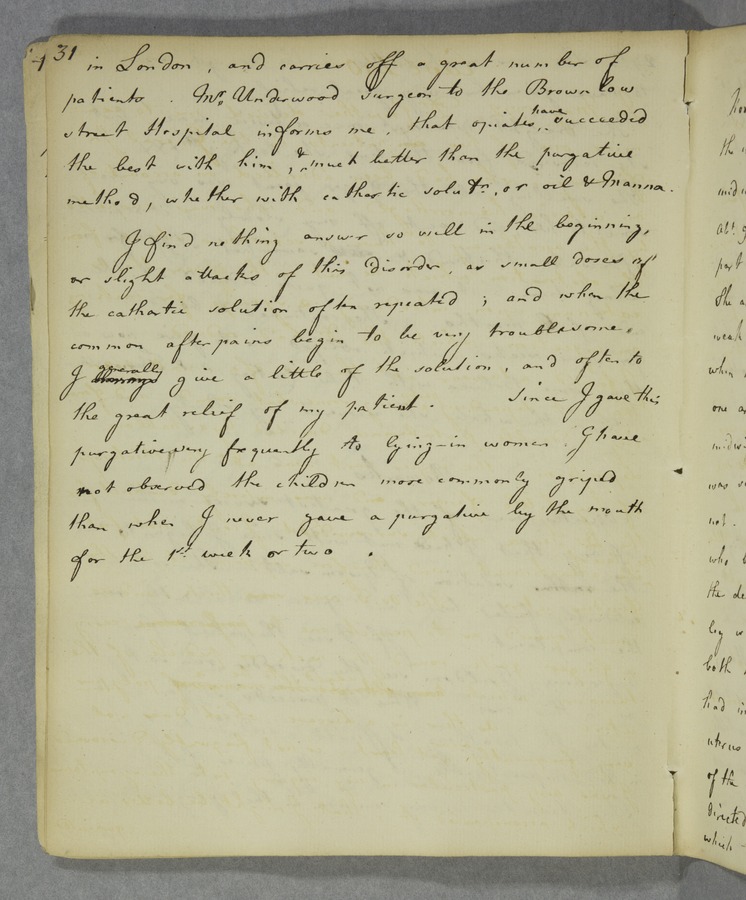 31
in London, and carries off a great number of
patients. Mr. Underwood Surgeon to the Brownlow
street Hospital informs me, that opiates have succeeded
the best with him, & much better than the purgative
method, whether with cathartic solutn., or oil & Manna.
I find nothing answer so well in the beginning,
or slight attacks of this disorder, as small doses of
the cathartic solution often repeated; and when the
common after pains begin to be very troublesome,
I generally give a little of the solution, and often to
the great relief of my patient. Since I gave this
purgative very frequently to lying-in women I have
not observed the children more commonly griped
than when I never gave a purgative by the mouth
for the 1st. week or two.